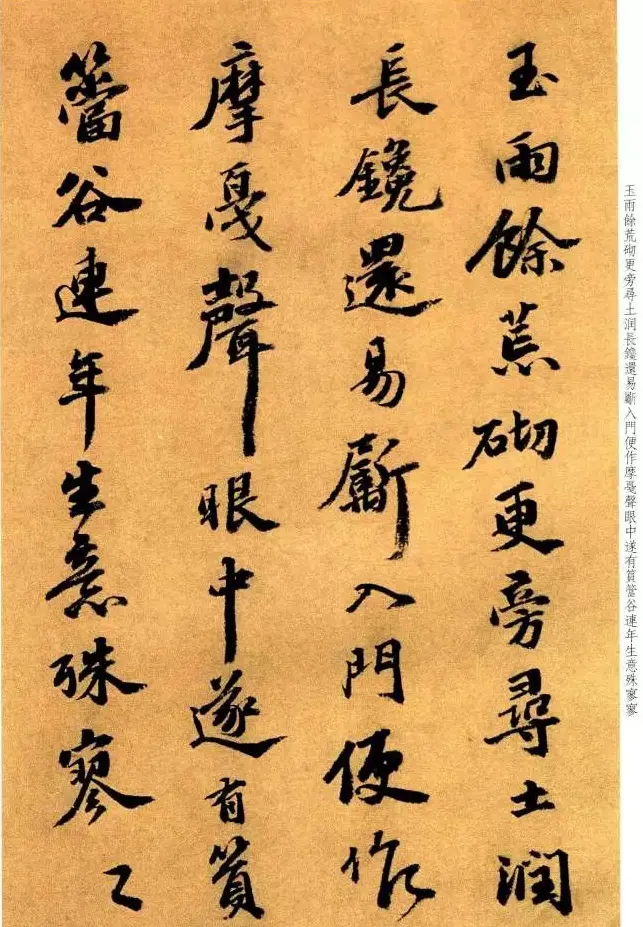 玉雨餘荒砌更旁尋土润長鑱還易斸入門便作摩戛聲眼中遂有篔簹谷連年生意殊寥寥
玉雨餘荒砌更旁尋土潤
長鑱還易斸入門便作
摩戛聲眼中遂有篔
簹谷連年生意殊寥〻